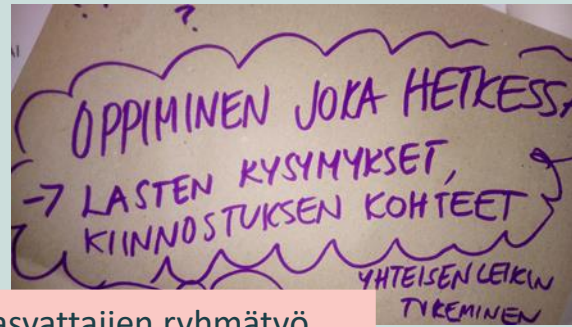 ?
OPPIMINEN JOKA HETKESSÄ
-> LASTEN KYSYMYKSET,
KIINNOSTUKSEN KOHTEET
YHTEISEN LEIKIN
TUKEMINEN
asvattajien ryhmätyö